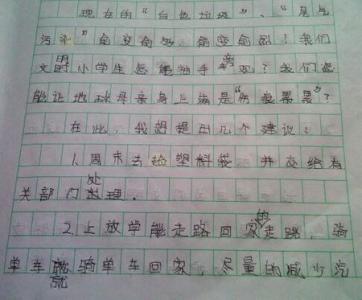 现在的“白色垃圾”、“尾气
污染”愈变愈多，愈变愈剧！我们
文明小学生怎能袖手旁观？我们怎
能让地球母亲身上满是“伤痕累累”？
在此，我想提出几个建议：
1.周末去捡塑料袋，并交给有
关部门处理。
2.上放学能走路回家就走路，骑
单车就骑单车回家，尽量的减少污